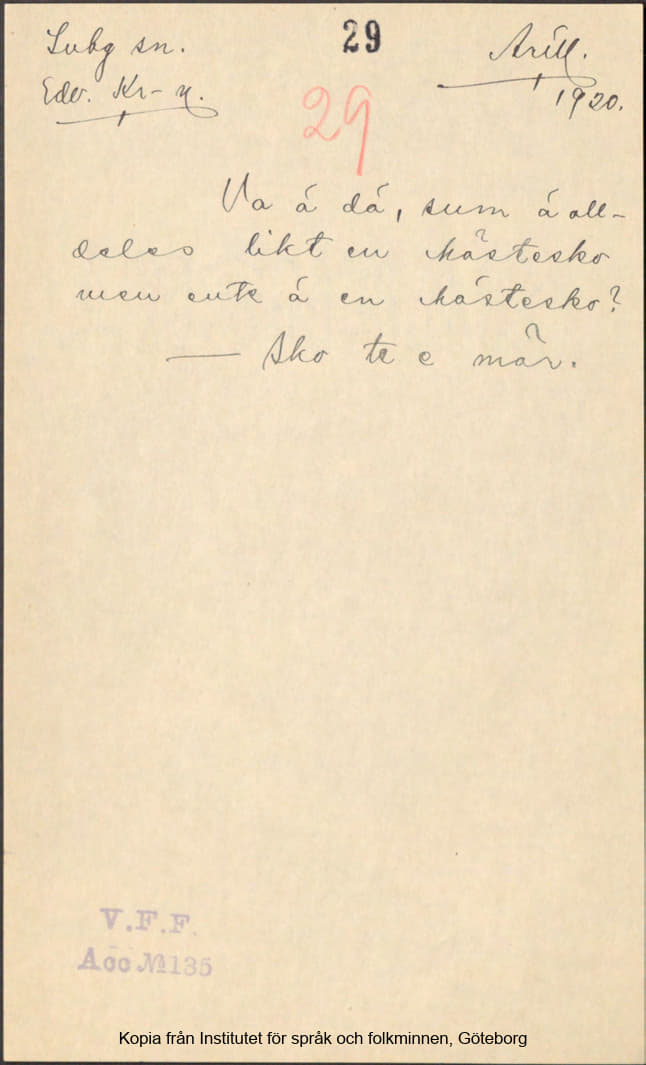 Lubg sn.
29
Arill.
Edv. Kr-n.
1920.
29
Va á dá, sum á all-
deles likt en hästesko
men ente á en hästesko?
— Sko te e mär.
V.F.F.
Acc № 135
Kopia från Institutet för språk och folkminnen, Göteborg